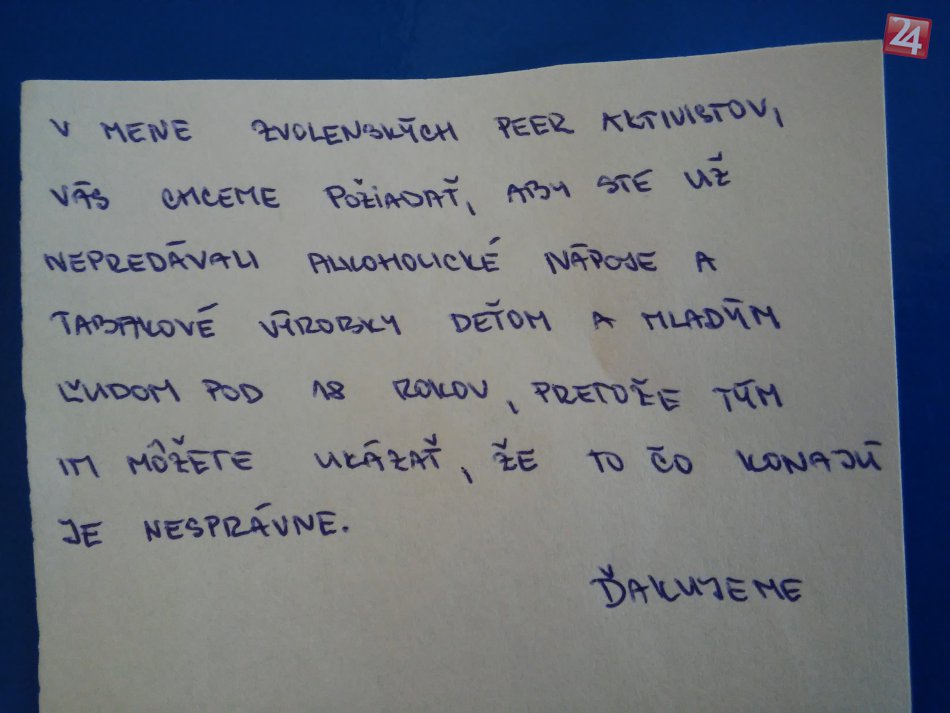 24
V MENE ZVOLENSKÝCH PEER AKTIVISTOV,
VÁS CHCEME POŽIADAŤ, ABY STE UŽ
NEPREDÁVALI ALKOHOLICKÉ NÁPOJE A
TABAKOVÉ VÝROBKY DEŤOM A MLADÝM
ĽUDOM POD 18 ROKOV, PRETOŽE TÝM
IM MÔŽETE UKÁZAŤ, ŽE TO ČO KONAJÚ
JE NESPRÁVNE.
ĎAKUJEME